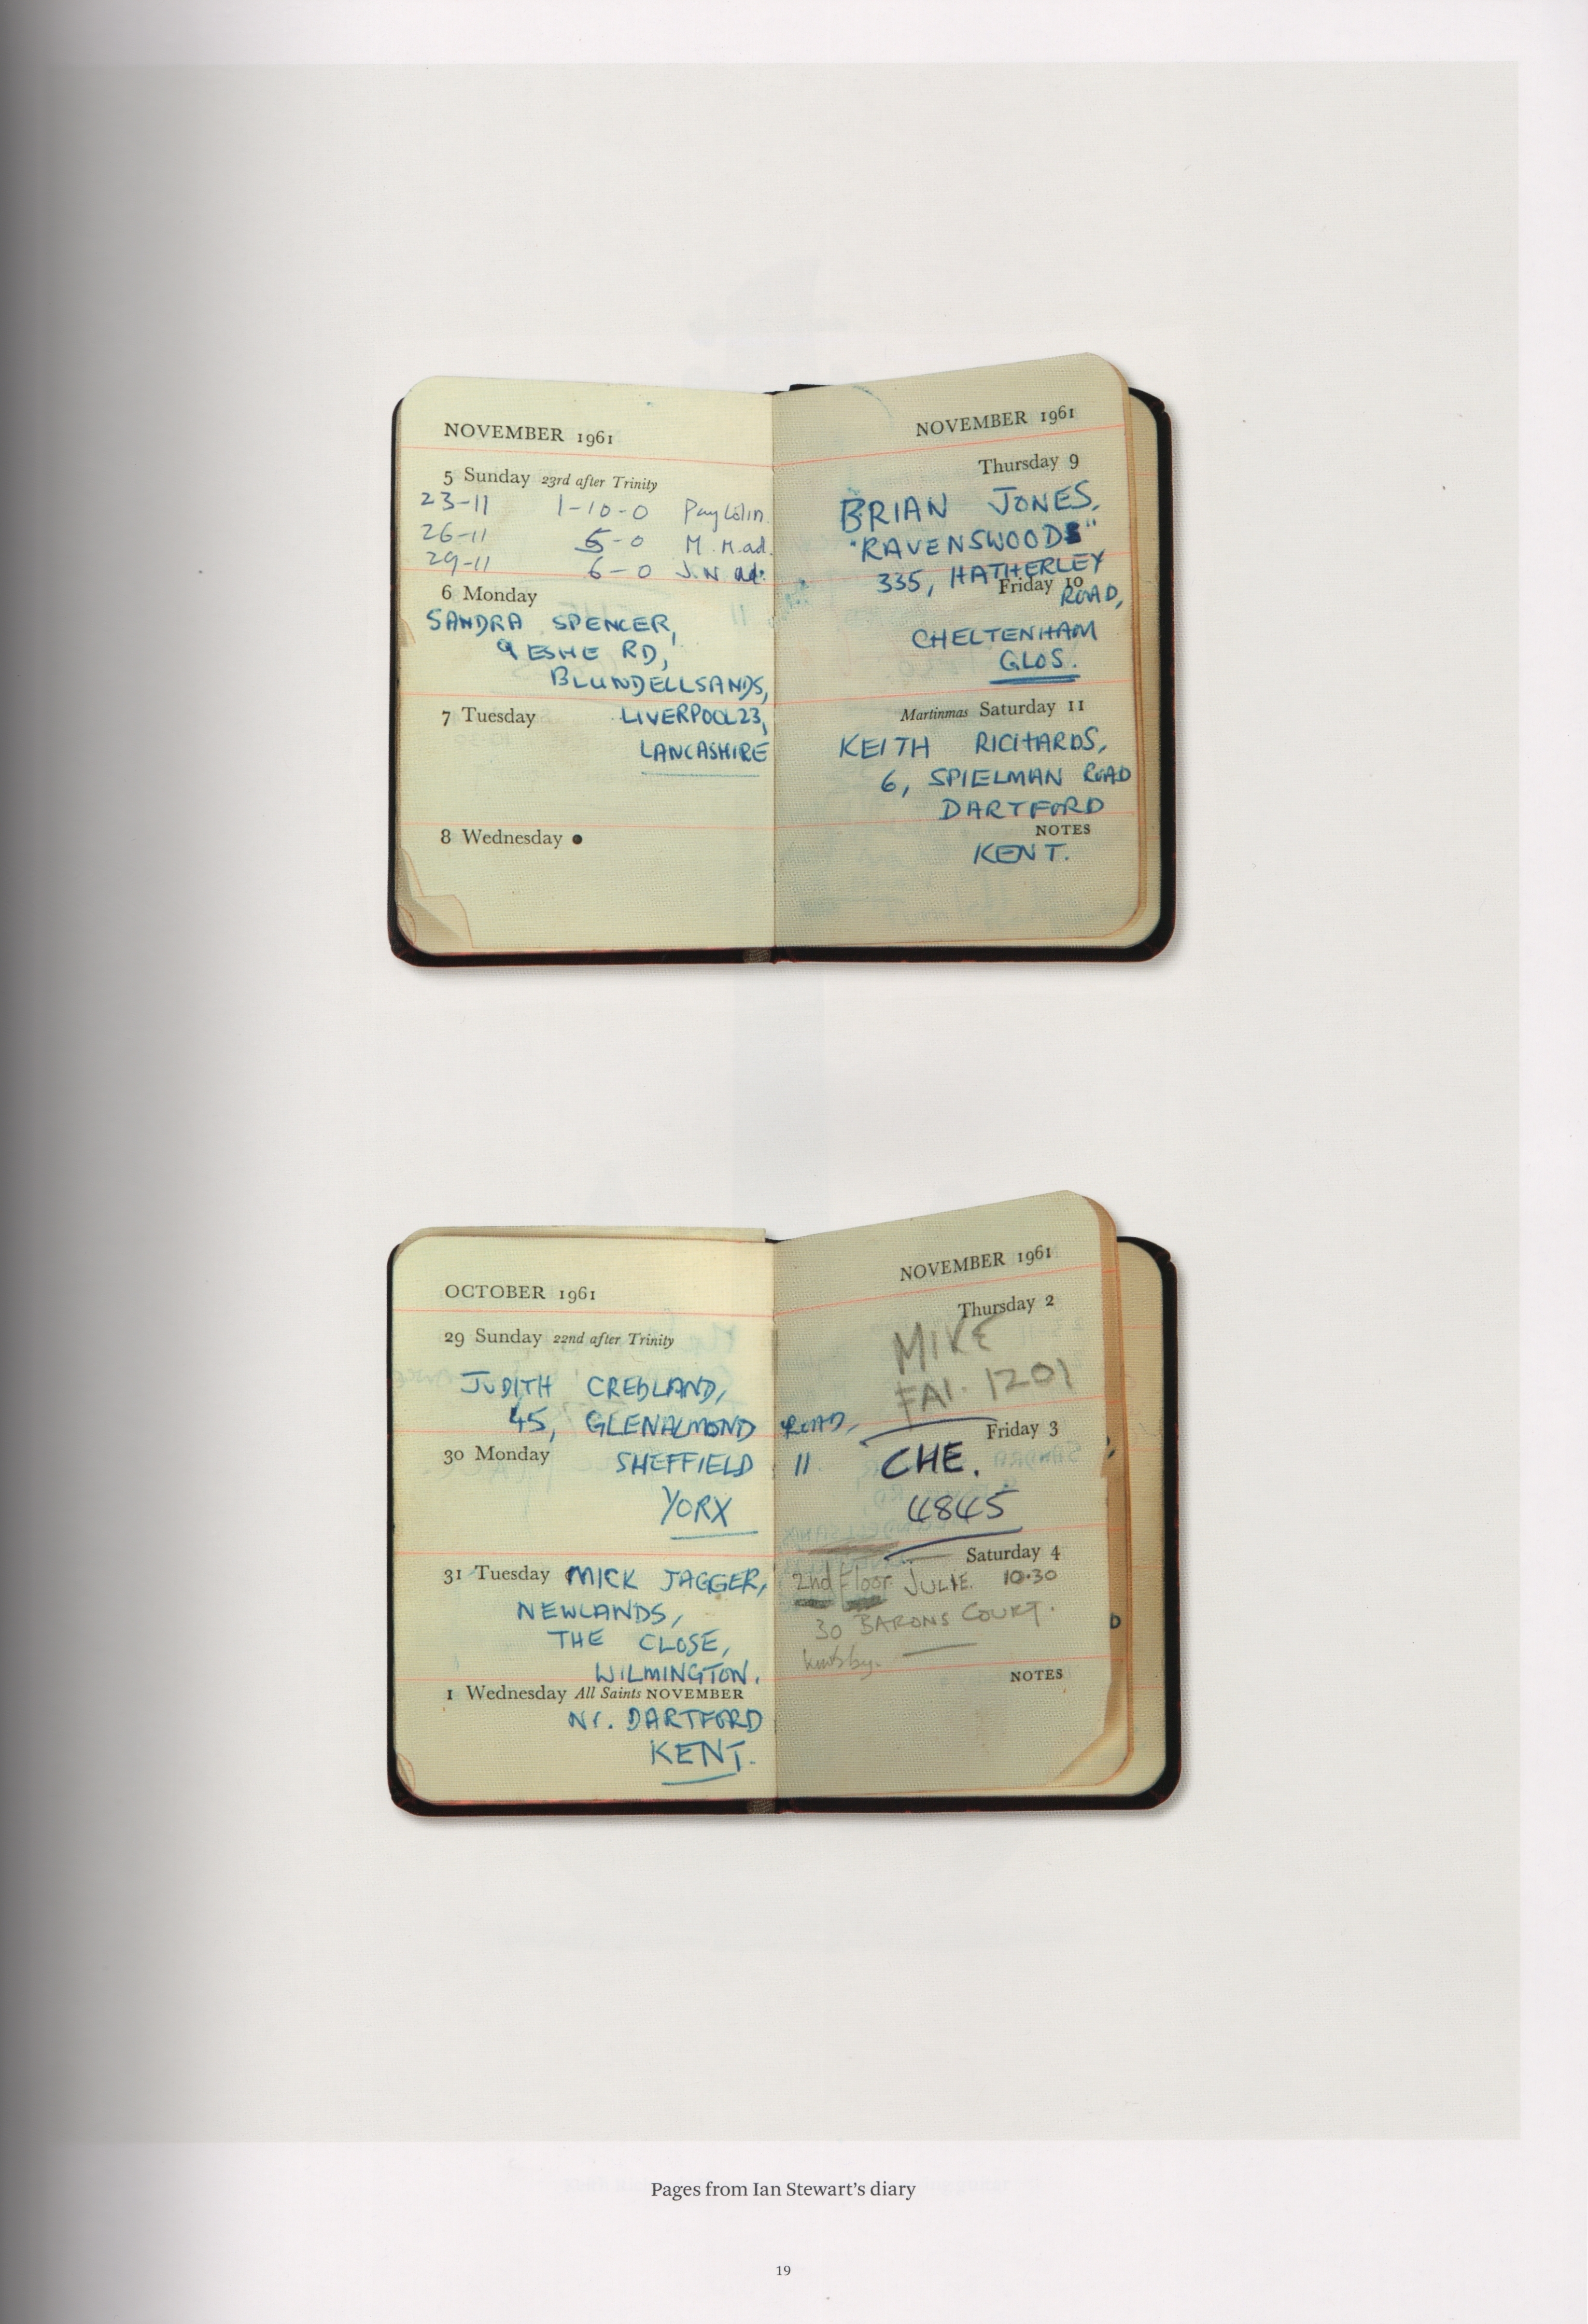 NOVEMBER 1961
5 Sunday 23rd after Trinity
23-11 1-10-0 Pay Colin.
26-11 5-0 M. M. ad.
29-11 6-0 J. N. ad.
6 Monday
SANDRA SPENCER,
9 ESHE RD,
BLUNDELLSANDS,
7 Tuesday LIVERPOOL 23,
LANCASHIRE
8 Wednesday
NOVEMBER 1961
Thursday 9
BRIAN JONES,
"RAVENSWOOD"
335, HATHERLEY
Friday 10
ROAD,
CHELTENHAM
GLOS.
Martinmas Saturday 11
KEITH RICHARDS,
6, SPIELMAN ROAD
DARTFORD
NOTES
KENT.
OCTOBER 1961
29 Sunday 22nd after Trinity
JUDITH CREDLAND,
45, GLENALMOND ROAD,
30 Monday SHEFFIELD 11.
YORX
31 Tuesday MICK JAGGER,
NEWLANDS,
THE CLOSE,
WILMINGTON.
1 Wednesday All Saints NOVEMBER
Nr. DARTFORD
KENT.
NOVEMBER 1961
Thursday 2
MIKE
FAI. 1201
Friday 3
CHE.
4845
Saturday 4
2nd Floor. JULIE. 10.30
30 BARONS COURT.
NOTES
Pages from Ian Stewart's diary
19